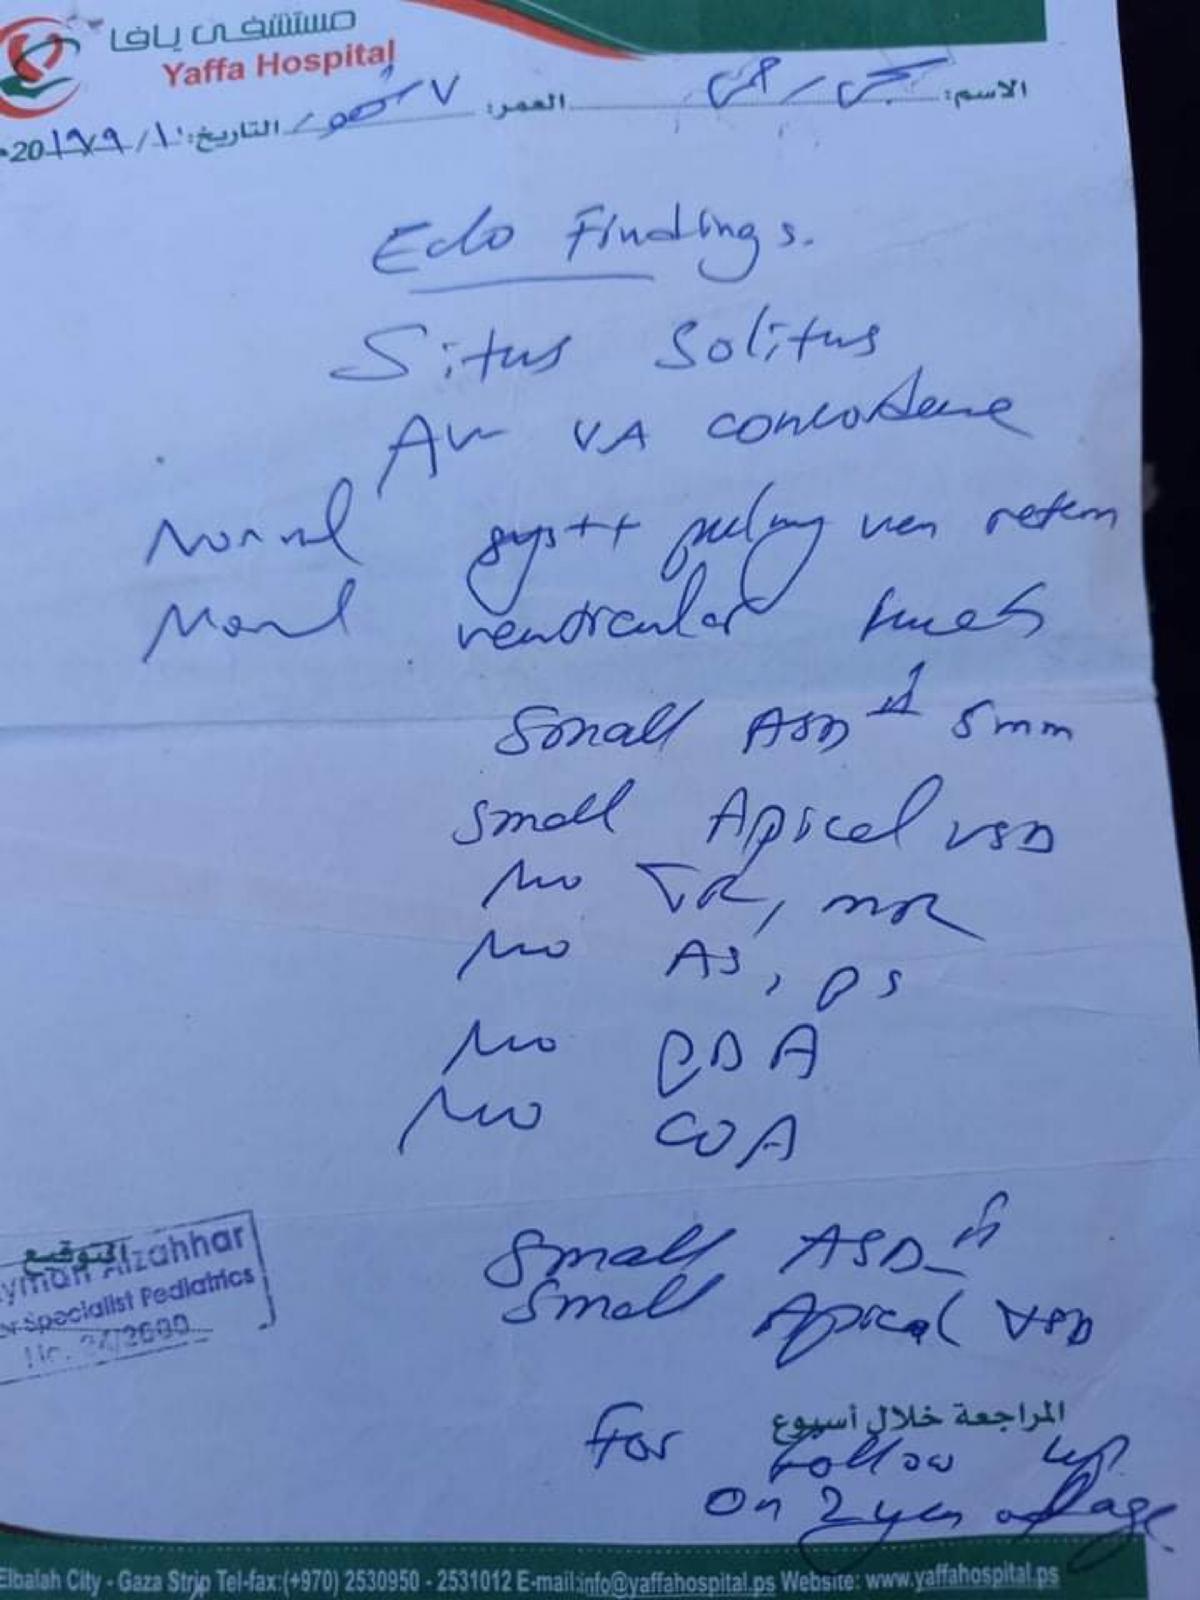 مستشفى يافا
Yaffa Hospital
الاسم: العمر: ٧
التاريخ: ١٠/٩/2019
Echo Findings.
Situs Solitus
AV VA concordance
Normal syst + pulmy ven return
Normal ventricular
Small ASD II 5mm
small Apical VSD
No TR, MR
No AS, PS
No PDA
No COA
Small ASD II
Small Apical VSD
التوقيع
Alzahhar
Specialist Pediatrics
المراجعة خلال أسبوع
For Follow up
on 2 year of age
Elbalah City - Gaza Strip Tel-fax:(+970) 2530950 - 2531012 E-mail:info@yaffahospital.ps Website: www.yaffahospital.ps